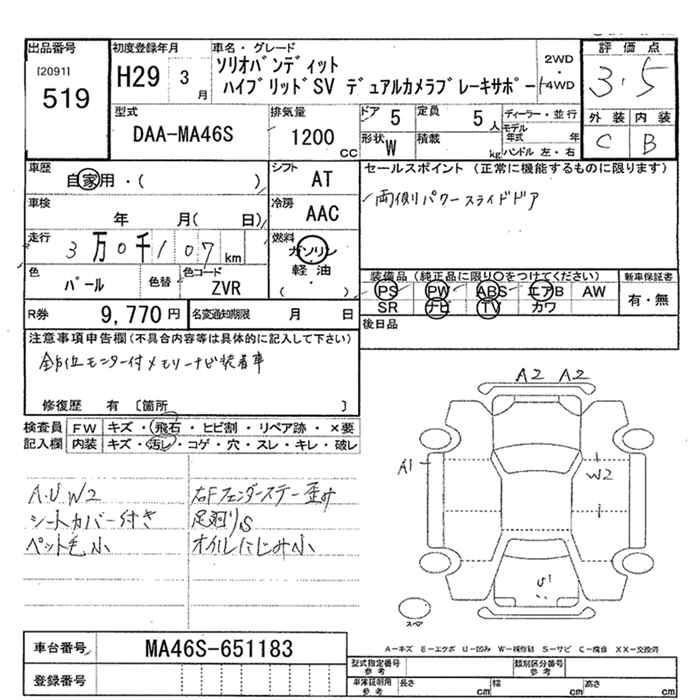 出品番号
[2091]
519
初度登録年月
H29 3
月
車名・グレード
ソリオバンディット
ハイブリッドSV デュアルカメラブレーキサポート
2WD
・
4WD
評価点
3.5
外装 内装
C B
型式
DAA-MA46S
排気量
1200
CC
ドア 5
定員 5
人
形状 W
積載
kg
ディーラー・並行
モデル
年式 年
ハンドル 左・右
車歴
自家用・( )
シフト
AT
セールスポイント(正常に機能するものに限ります)
両側パワースライドドア
車検
年 月( 日)
冷房
AAC
走行
3万0千107km
燃料
ガソリン
軽油
( ・ )
色
パール
色替
色コード
ZVR
装備品(純正品に限り○をつけてください)
PS PW ABS エアB AW
SR ナビ TV カワ
新車保証書
有・無
R券 9,770円
名変通知期限 月 日
後日品
注意事項申告欄(不具合内容等は具体的に記入して下さい)
全方位モニター付メモリーナビ装着車
修復歴 有 〔箇所 〕
検査員 FW キズ・飛石・ヒビ割・リペア跡・×要
記入欄 内装 キズ・汚レ・コゲ・穴・スレ・キレ・破レ
A2 A2
A1
W2
U1
スペア
A.U W2
シートカバー付き
ペット毛小
右Fフェンダーステー歪み
足廻りS
オイルにじみ小
A-キズ E-エクボ U-凹み W-補修跡 S-サビ C-腐食 XX-交換済
車台番号 MA46S-651183
登録番号
型式指定番号
参考
類別区分番号
参考
車庫証明用
参考
長さ cm
幅 cm
高さ cm